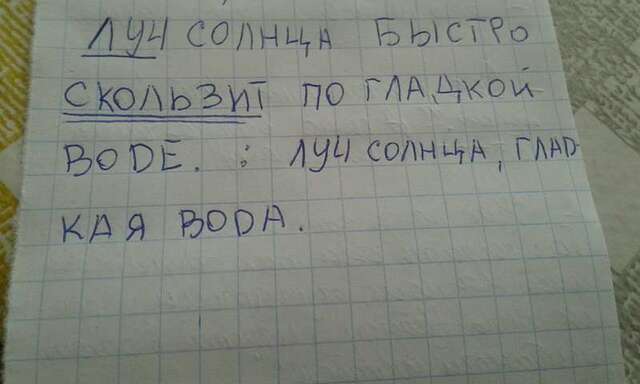 ЛУЧ СОЛНЦА БЫСТРО
СКОЛЬЗИТ ПО ГЛАДКОЙ
ВОДЕ. : ЛУЧ СОЛНЦА, ГЛАД-
КАЯ ВОДА.